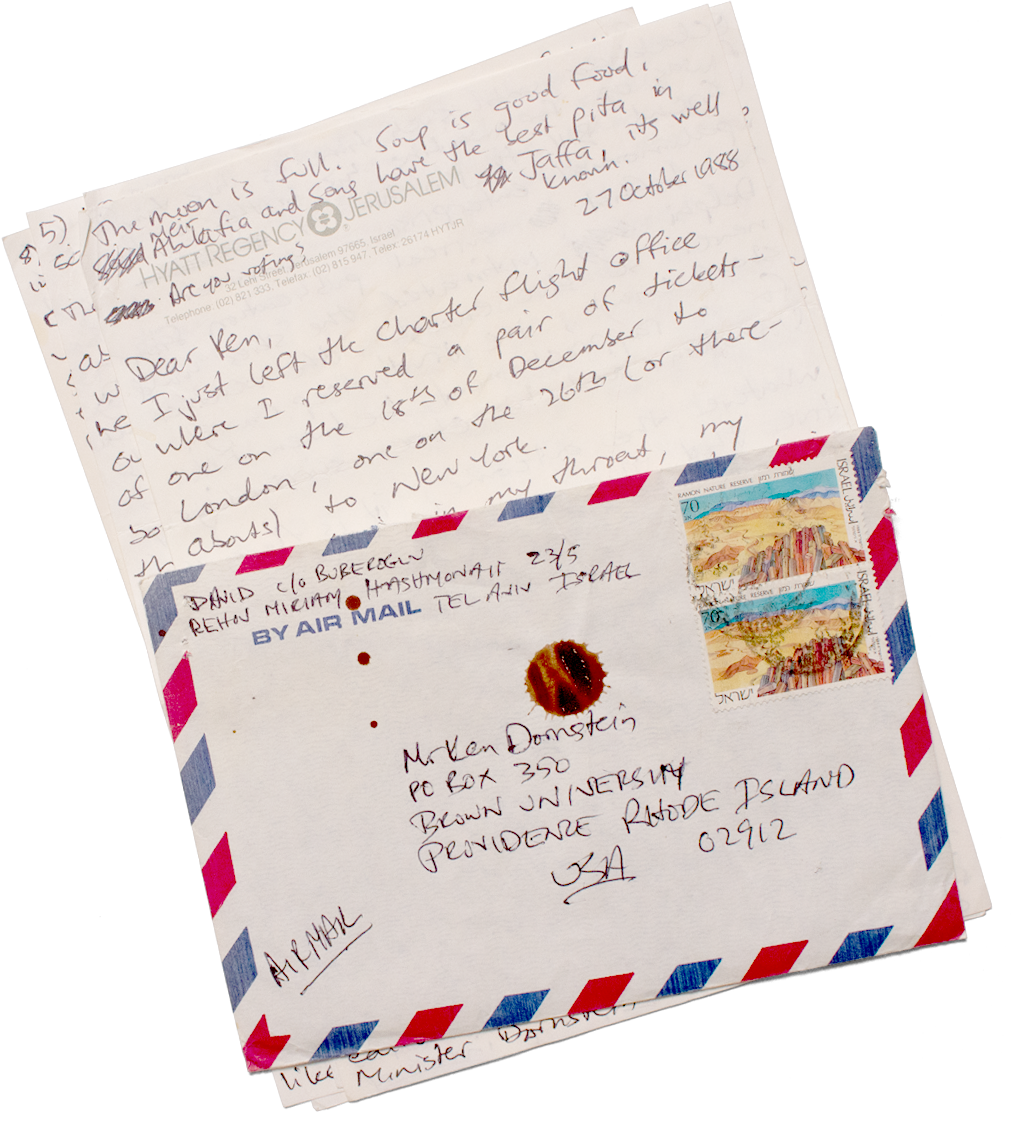 5) The moon is full. Soup is good food.
Meir
Abulafia and Sons have the best pita in
Jaffa, its well
known.
HYATT REGENCY JERUSALEM
32 Lehi Street, Jerusalem 97665, Israel
Telephone: (02) 821 333, Telefax: (02) 815 947, Telex: 26174 HYTJR
Are you voting?
27 October 1988
Dear Ken,
I just left the charter flight office
where I reserved a pair of tickets-
one on the 18th of December to
London, one on the 26th (or there-
abouts) to New York.
in my throat, my
DAVID c/o BUBEROGLU
REHOV MIRIAM HASHMONAIT 23/5
TEL AVIV ISRAEL
BY AIR MAIL
RAMON NATURE RESERVE שמורת רמון
70
ISRAEL
ישראל
RAMON NATURE RESERVE
70
ISRAEL
ישראל
Mr Ken Dornstein
PO BOX 350
BROWN UNIVERSITY
PROVIDENCE RHODE ISLAND
02912
USA
AIRMAIL
like
Minister Dornstein